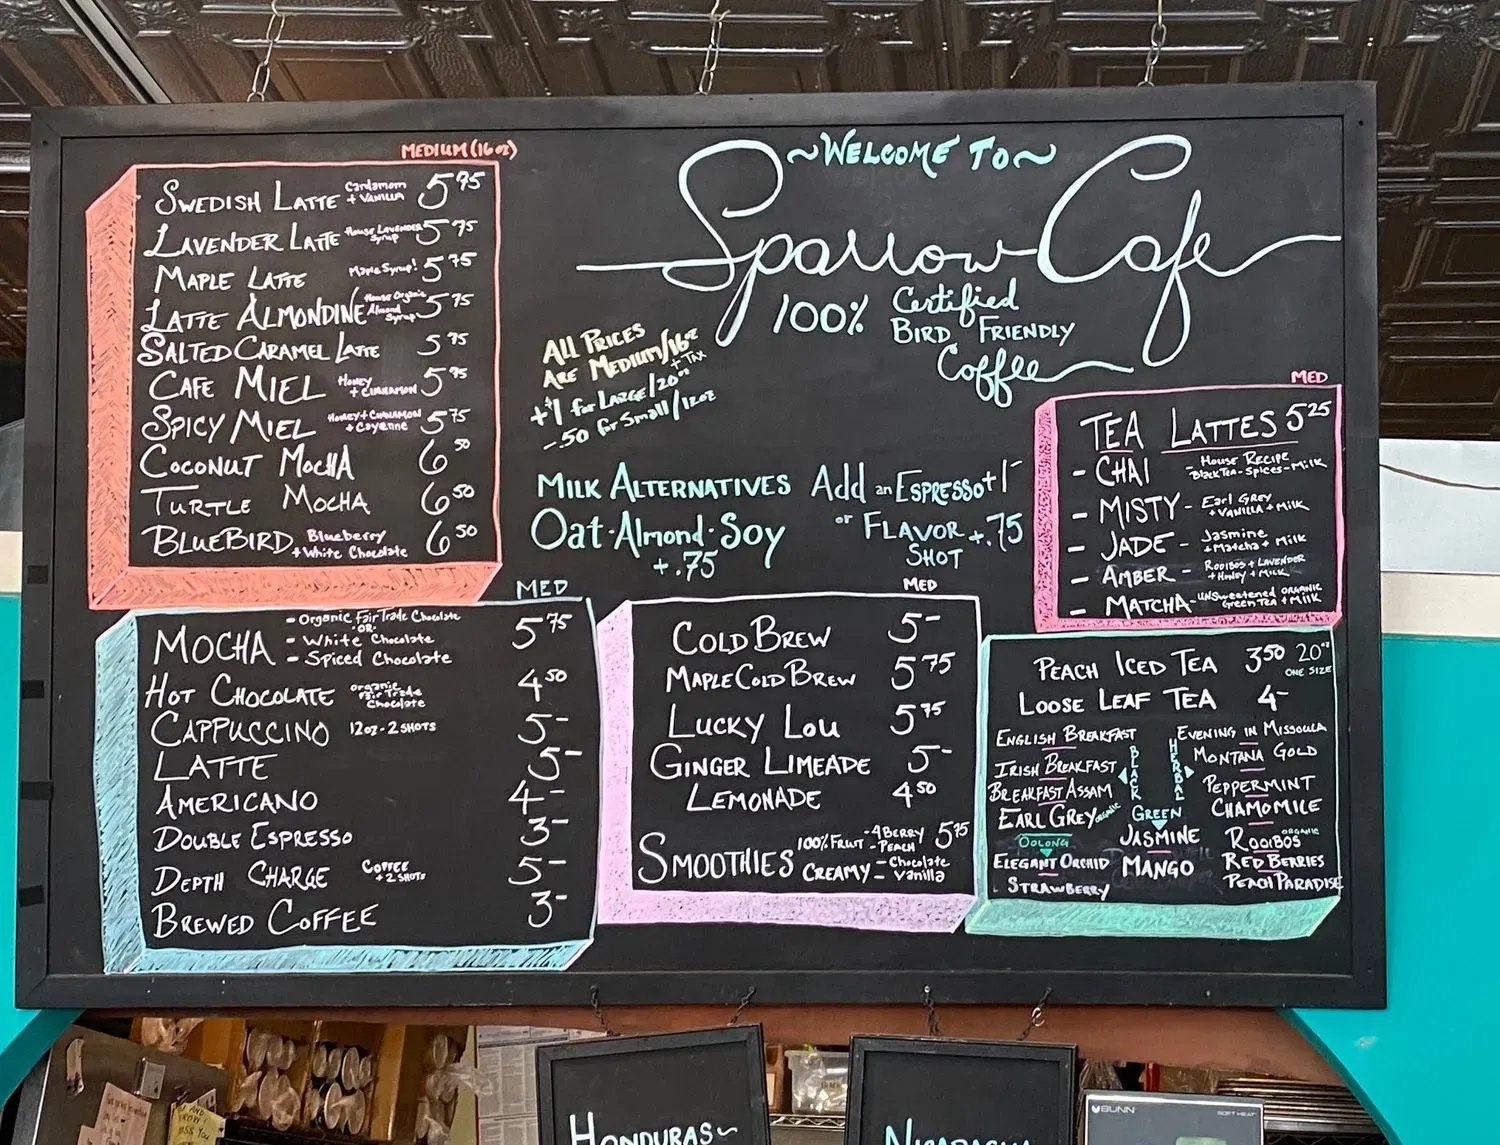 ~WELCOME TO~
Sparrow Cafe
100% Certified
BIRD FRIENDLY
Coffee
MEDIUM (16oz)
SWEDISH LATTE Cardamom + VANILLA 5 75
LAVENDER LATTE House LAVENDER Syrup 5 75
MAPLE LATTE Maple Syrup! 5 75
LATTE ALMONDINE House Organic Almond Syrup 5 75
SALTED CARAMEL LATTE 5 75
CAFE MIEL HONEY + CINNAMON 5 75
SPICY MIEL HONEY + CINNAMON + Cayenne 5 75
COCONUT MOCHA 6 50
TURTLE MOCHA 6 50
BLUEBIRD Blueberry + White Chocolate 6 50
ALL PRICES
ARE MEDIUM/16oz
+ TAX
+$1 for LARGE/20oz
-.50 for Small/12oz
MILK ALTERNATIVES
Oat·Almond·Soy
+.75
Add an ESPRESSO +1-
or FLAVOR +.75
SHOT
MED
TEA LATTES 5 25
- CHAI - HOUSE RECIPE
Black Tea - Spices - Milk
- MISTY - Earl GREY
+ VANILLA + MILK
- JADE - Jasmine
+ Matcha + Milk
- AMBER - ROOIBOS + LAVENDER
+ HONEY + MILK
- MATCHA - UNSweetened ORGANIC
Green Tea + Milk
MED
MOCHA - Organic Fair Trade Chocolate 5 75
-OR-
- White Chocolate
- Spiced Chocolate
HOT CHOCOLATE organic Fair Trade Chocolate 4 50
CAPPUCCINO 12oz - 2 SHOTS 5-
LATTE 5-
AMERICANO 4-
DOUBLE ESPRESSO 3-
DEPTH CHARGE COFFEE + 2 SHOTS 5-
BREWED COFFEE 3-
MED
COLD BREW 5-
MAPLE COLD BREW 5 75
LUCKY LOU 5 75
GINGER LIMEADE 5-
LEMONADE 4 50
SMOOTHIES 100% FRUIT - 4 BERRY 5 75
- PEACH
CREAMY - Chocolate
Vanilla
PEACH ICED TEA 3 50 20oz
ONE SIZE
LOOSE LEAF TEA 4-
BLACK
ENGLISH BREAKFAST
IRISH BREAKFAST
BREAKFAST ASSAM
EARL GREY organic
OOLONG
ELEGANT ORCHID
STRAWBERRY
GREEN
JASMINE
MANGO
HERBAL
EVENING IN MISSOULA
MONTANA GOLD
PEPPERMINT
CHAMOMILE
ROOIBOS ORGANIC
RED BERRIES
PEACH PARADISE
HONDURAS~
NICARAGUA
BUNN
SOFT HEAT